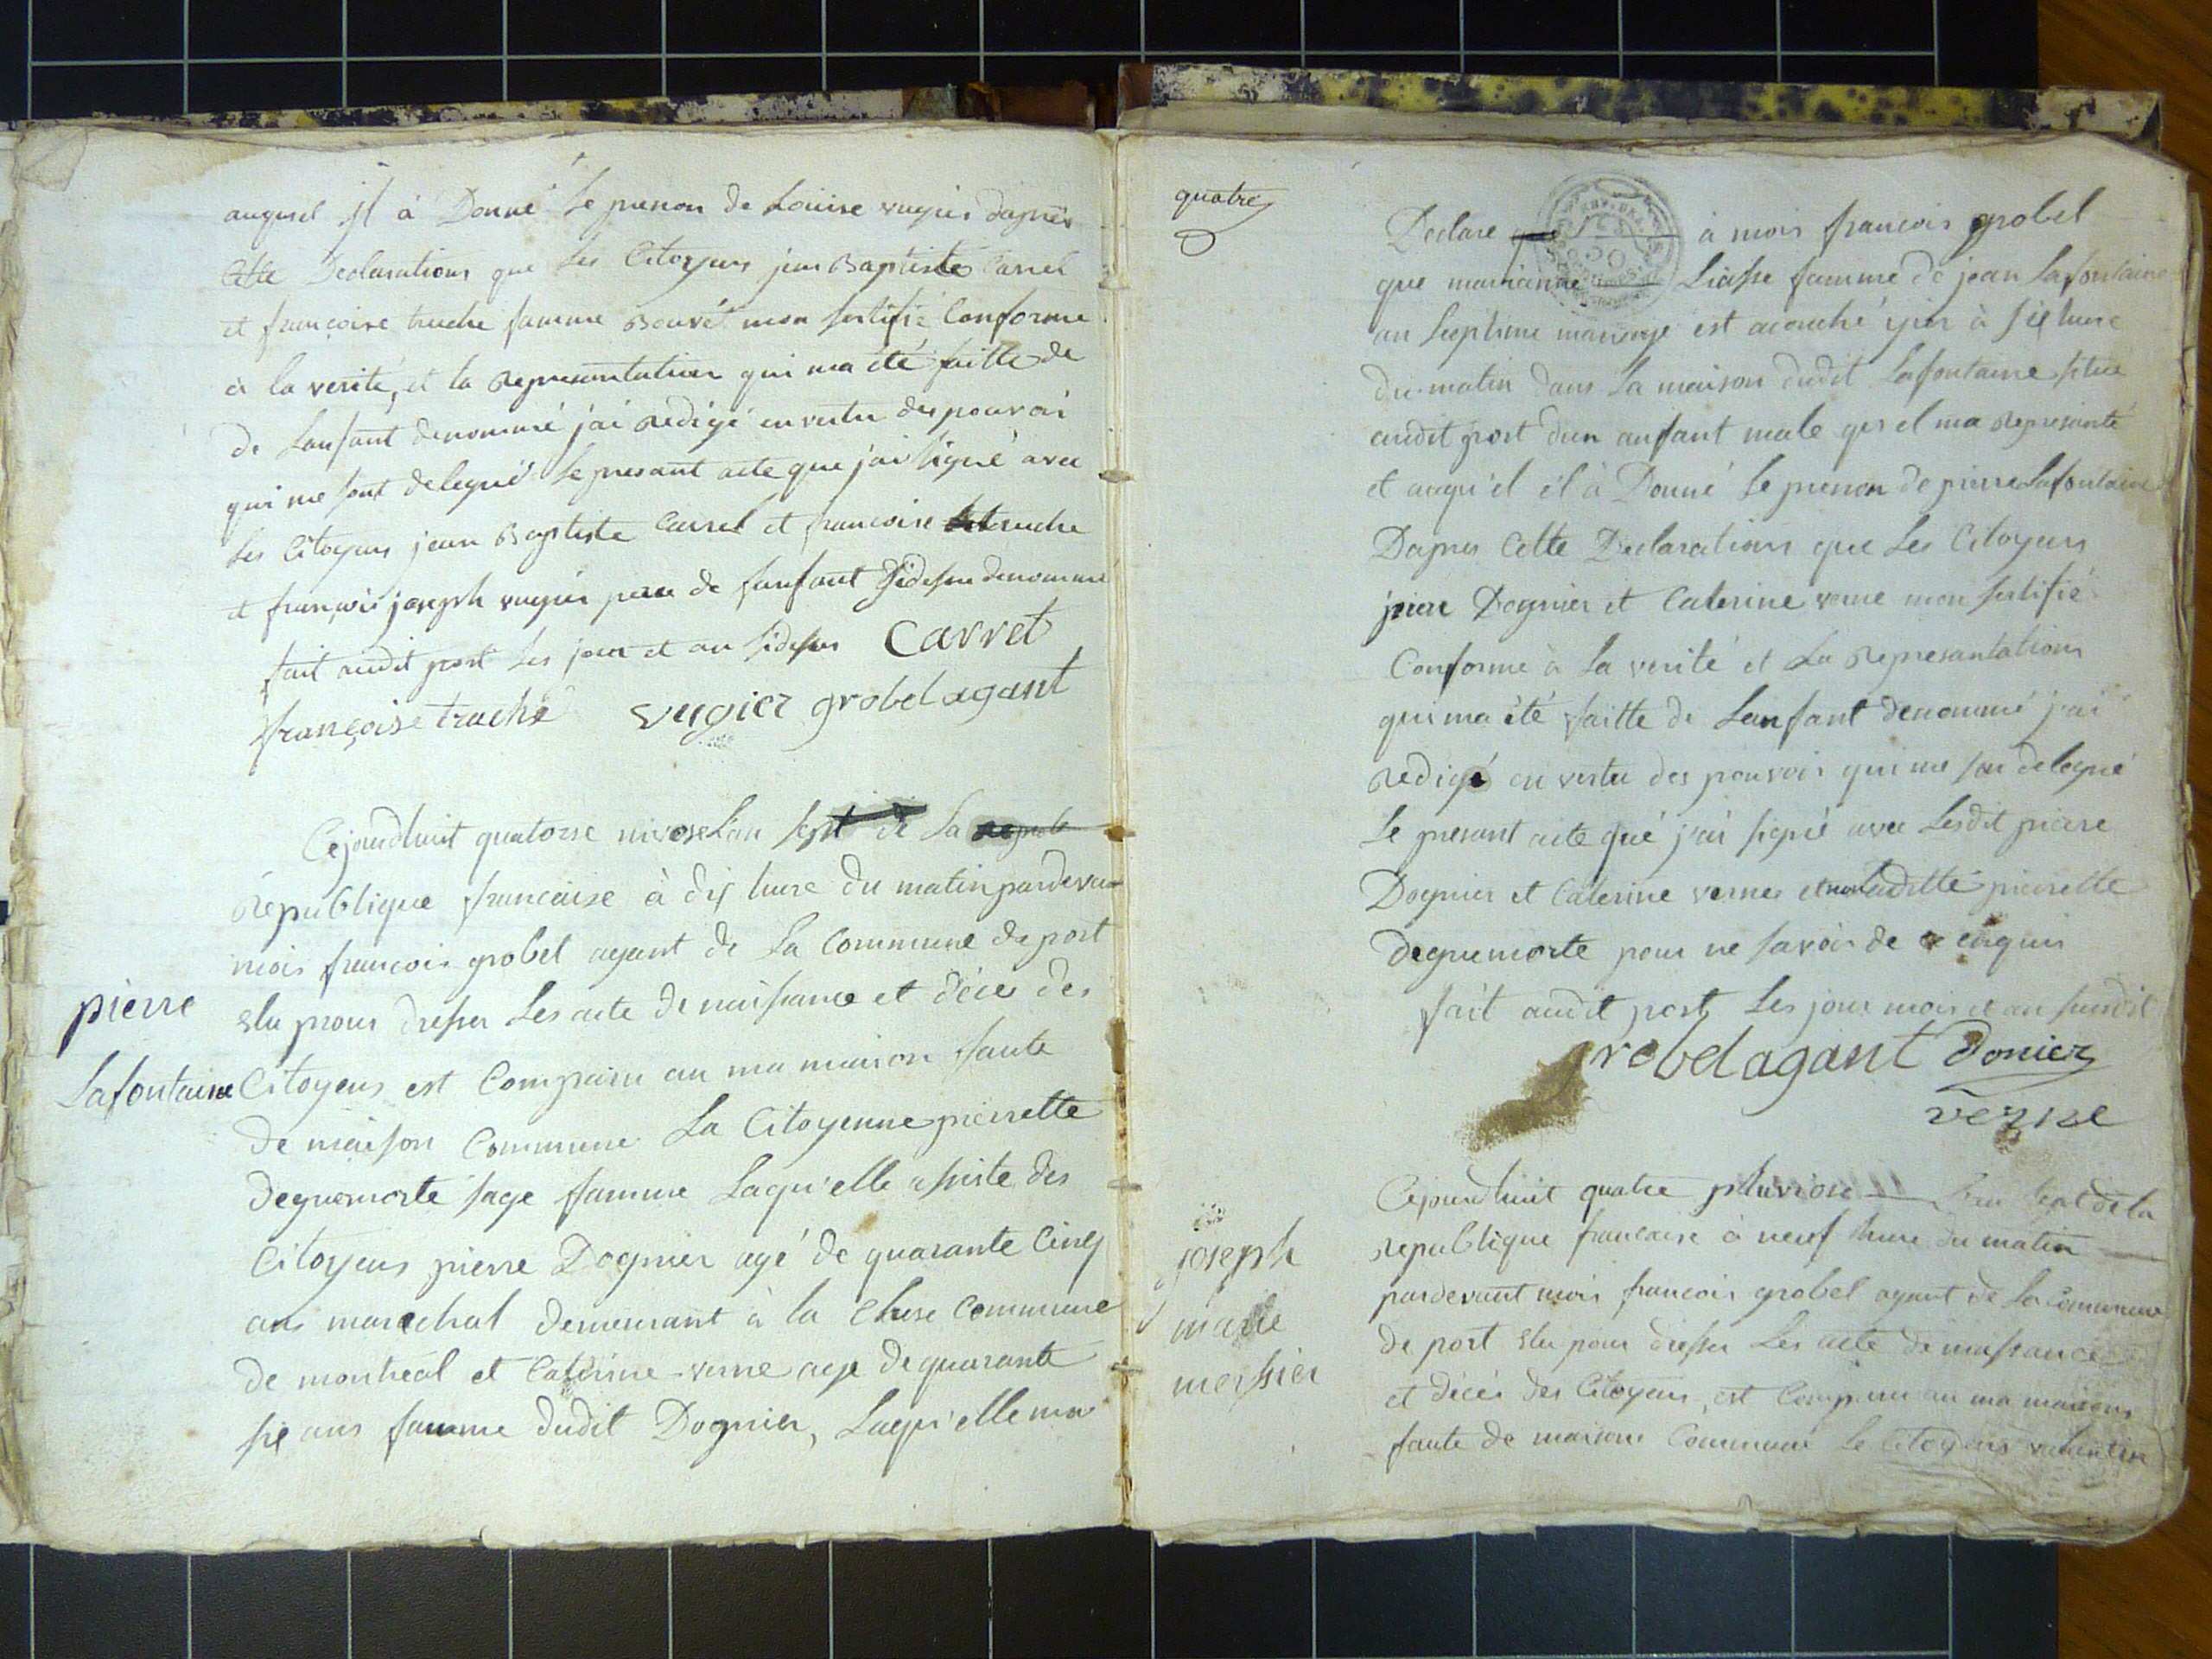 auquel jl à Donné Le prenon de Louise vugier dapres
Cette Declarations que Les Citoyens jean Baptiste Carret
et françoise truche famme Bouvé mon sertifié Conforme
à la verité, et la Representation qui ma été faitte de
de Lanfant denommé j'ai Redigé en vertu des pouvoir
qui me sont delegué Le presant acte que j'ai signé avec
Les Citoyens jean Baptiste Carret et francoise truche
et françois joseph vugier pere de Lanfant sidesus denommé
fait audit port Les jour et an sidesus Carret
françoise truche vugier grobel agant
Cejourdhuit quatorse nivose Lan sept de La
Republique francaise à dix heure du matin pardevan
mois francois grobel agant de La Commune de port
elu pour dresser Les acte de naissance et décé des
pierre
Lafontaine
Citoyens est Comparu an ma maison faute
de maison Commune La Citoyenne pierrette
deguemorte sage famme Laqu'elle assiste des
Citoyens pierre Dognier agé de quarante Cinq
ans marechal demeurant à la Cluse Commune
de montreal et Caterine verne age de quarante
six ans famme dudit Dognier, Laqu'elle ma
quatre
Declare à mois francois grobel
que marianne Liasse famme de jean Lafontaine
an septime mariage est acouché yier à six heure
du matin dans La maison dudit Lafontaine situé
audit port dun anfant male qu'el ma Represanté
et auqu'el il à Donné Le prenon de pierre Lafontaine
Dapres Cette Declarations que Les Citoyens
piere Dognier et Caterine verne mon sertifié
Conforme à La verité et La Represantations
qui ma été faitte de Lanfant denommé j'ai
Redigé en vertu des pouvoir qui me son delegué
Le presant acte qué j'ai signé avec Lesdit pierre
Dognier et Caterine vernes et non Laditte pierrette
deguemorte pour ne savoir de ce enquis
fait audit port Les jour mois et an susdit
grobel agant Donier
verne
Cejourdhuit quatre pluviose Lan sept de la
joseph
marie
messier
republique francaise à neuf heure du matin
pardevant mois francois grobel agant de La Commune
de port elu pour dresser Les acte de naissance
et décéi des Citoyens, est Comparu an ma maisons
faute de maisons Commune Le Citoyens valentin